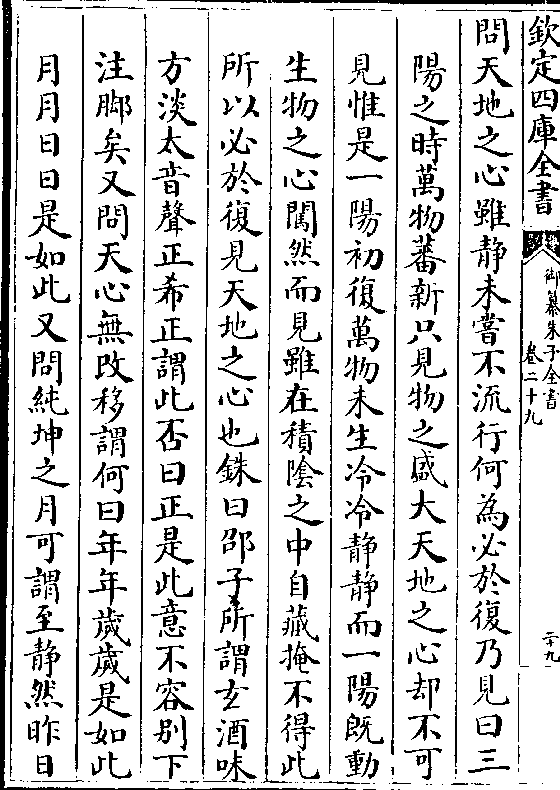 欽定四庫全書
御纂朱子全書
卷二十九
二十九
問天地之心雖静未嘗不流行何為必於復乃見曰三
陽之時萬物蕃新只見物之盛大天地之心却不可
見惟是一陽初復萬物未生冷冷静静而一陽既動
生物之心闖然而見雖在積陰之中自藏掩不得此
所以必於復見天地之心也銖曰邵子所謂玄酒味
方淡太音聲正希正謂此否曰正是此意不容别下
注脚矣又問天心無改移謂何曰年年歲歲是如此
月月日日是如此又問純坤之月可謂至静然昨日